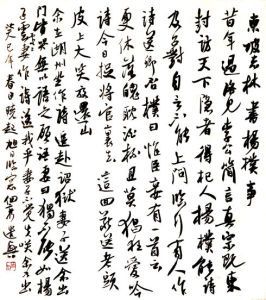 東坡志林書楊樸事
昔年過洛見李公簡言真宗既東
封訪天下隱者得杞人楊樸能詩
及召對自言不能上問臨行有人作
詩送卿否樸曰惟臣妾有一首云
更休落魄耽杯酒且莫猖狂愛吟
詩今日捉將官裏去這回斷送老頭
皮上大笑放還山
余在湖州坐作詩追赴詔獄妻子送余出
門皆哭無以語之顧語妻曰獨不能如楊
子雲處士妻作詩送我乎妻子不覺失笑余乃出
癸巳年春日 趙旭 遣興